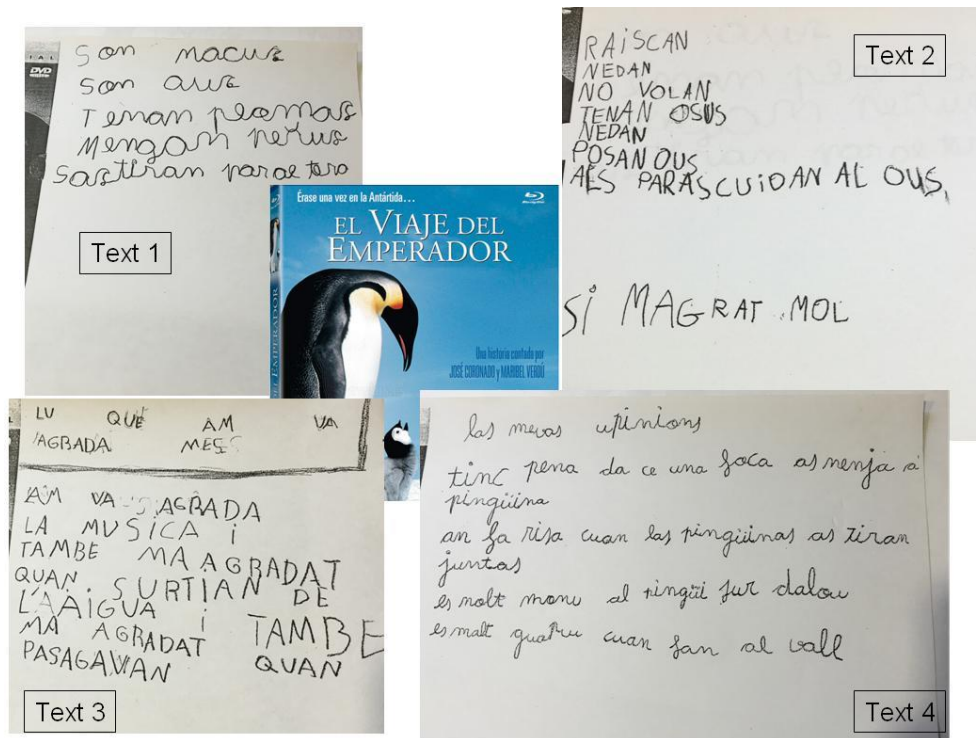 Son macus
Son aus
Tenan plomas
Mengan
Text 1
RAISCAN
NEDAN
NO VOLAN
TENAN OSUS
NEDAN
POSAN OUS
AES PARASCUIDAN AL OUS,
SI MAGRAT MOL
Text 2
DVD
Érase una vez en la Antártida...
EL VIAJE DEL
EMPERADOR
Una historia contada por
JOSÉ CORONADO y MARIBEL VERDÚ
LU QUE AM VA
AGRADA MES
AM VA AGRADA
LA MUSICA i
TAMBE MA AGRADAT
QUAN SURTIAN DE
L'AAIGUA i
MA AGRADAT TAMBE
PASAGAVAN QUAN
Text 3
las mevas upinions
tinc pena da ce una foca as menja a
pingüina
an fa risa cuan las pingüinas as tiran
juntas
es molt monu al pingüi fur dalou
es malt guatru cuan fan al vall
Text 4